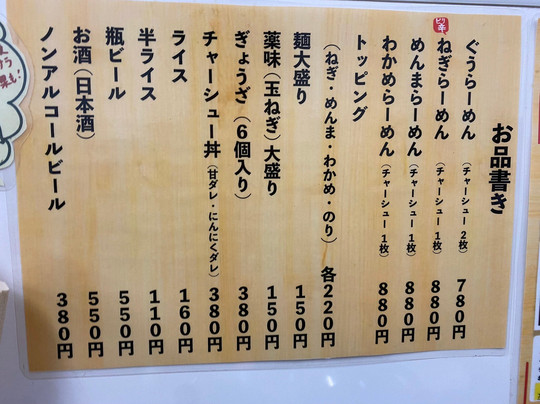 お品書き
ぐうらーめん (チャーシュー2枚) 780円
ピリ辛
ねぎらーめん (チャーシュー1枚) 880円
めんまらーめん (チャーシュー1枚) 880円
わかめらーめん (チャーシュー1枚) 880円
トッピング
(ねぎ・めんま・わかめ・のり) 各220円
麺大盛り 150円
薬味(玉ねぎ)大盛り 150円
ぎょうざ(6個入り) 380円
チャーシュー丼(甘ダレ・にんにくダレ) 380円
ライス 160円
半ライス 110円
瓶ビール 550円
お酒(日本酒) 550円
ノンアルコールビール 380円